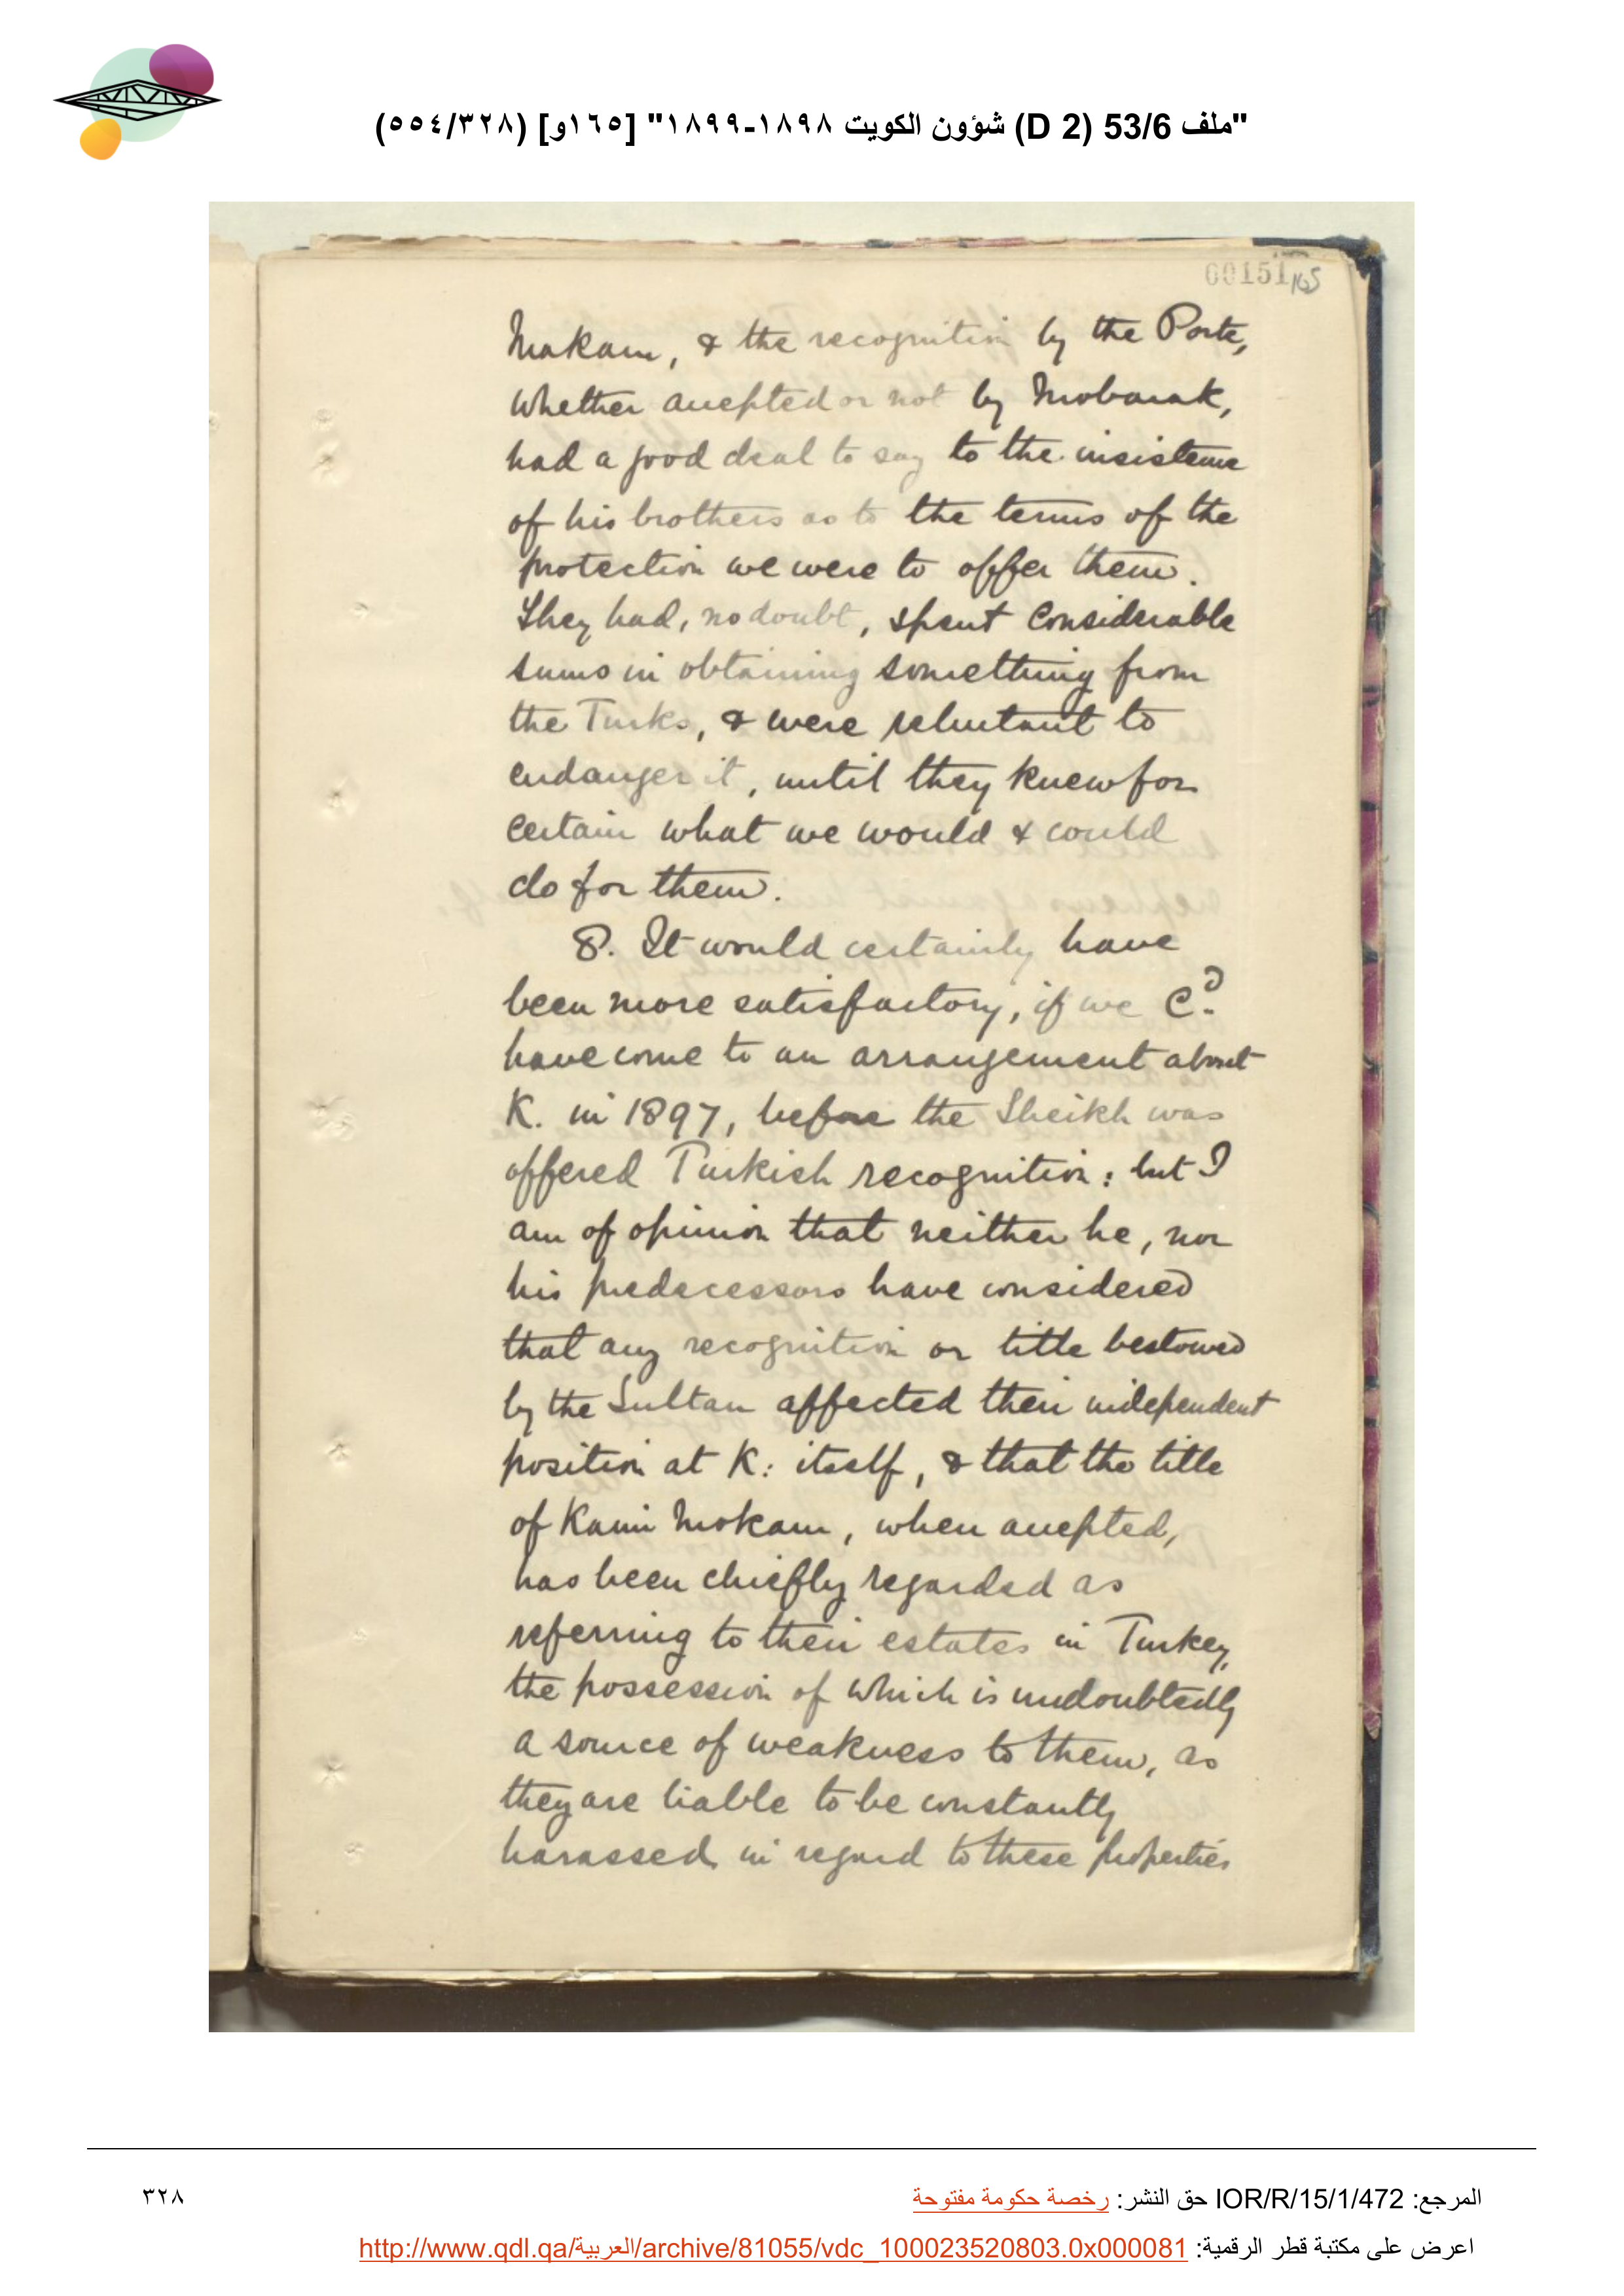 "ملف 53/6 (D 2) شؤون الكويت ١٨٩٨-١٨٩٩" [١٦٥و] (٣٢٨/٥٥٤)
00151 165
Mokam, & the recognition by the Porte,
whether accepted or not by Mobarak,
had a good deal to say to the insistence
of his brothers as to the terms of the
protection we were to offer them.
They had, no doubt, spent considerable
sums in obtaining something from
the Turks, & were reluctant to
endanger it, until they knew for
certain what we would & could
do for them.
8. It would certainly have
been more satisfactory, if we cd.
have come to an arrangement about
K. in 1897, before the Sheikh was
offered Turkish recognition: but I
am of opinion that neither he, nor
his predecessors have considered
that any recognition or title bestowed
by the Sultan affected their independent
position at K: itself, & that the title
of Kaim Mokam, when accepted,
has been chiefly regarded as
referring to their estates in Turkey,
the possession of which is undoubtedly
a source of weakness to them, as
they are liable to be constantly
harassed in regard to these properties
المرجع: IOR/R/15/1/472 حق النشر: رخصة حكومة مفتوحة
٣٢٨
اعرض على مكتبة قطر الرقمية: http://www.qdl.qa/العربية/archive/81055/vdc_100023520803.0x000081